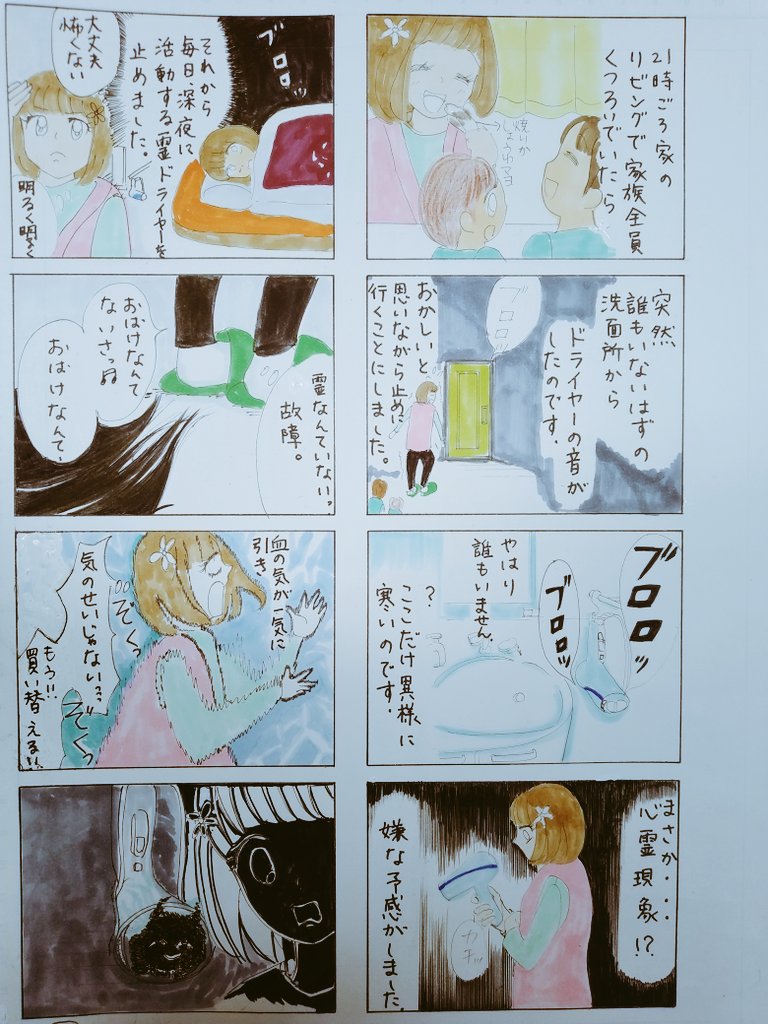 21時ごろ家の
リビングで家族全員
くつろいでいたら
焼いか
しょうゆマヨ
突然
誰もいないはずの
洗面所から
ドライヤーの音が
したのです.
ブロロッ
おかしいと
思いながら止めに
行くことにしました。
ブロロッ
ブロロッ
やはり
誰もいません.
?
ここだけ異様に
寒いのです.
まさか・・・
心霊現象!?
カチッ
嫌な予感がしました.
ブロロッ
それから
毎日、深夜に
活動する霊ドライヤーを
止めました。
大丈夫
怖くない
明るく明るく
霊なんていないっ
故障。
おばけなんて
ないさっ
おばけなんて、
血の気が一気に
引き
ぞくっ
気のせいじゃない??
ぞくっ
もう!!
買い替える!!